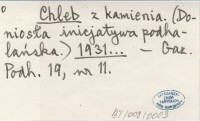 Chleb z kamienia. (Do-
niosła inicjatywa podha-
lańska.) 1931... – Gaz.
Podh. 19, nr 11.